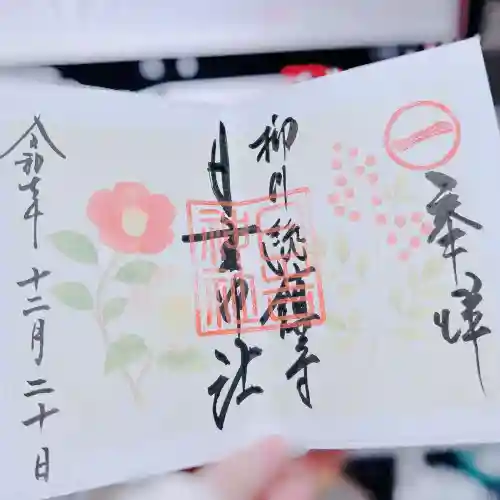 奉拝
柳川総鎮守
日吉神社
令和七年
十二月二十日